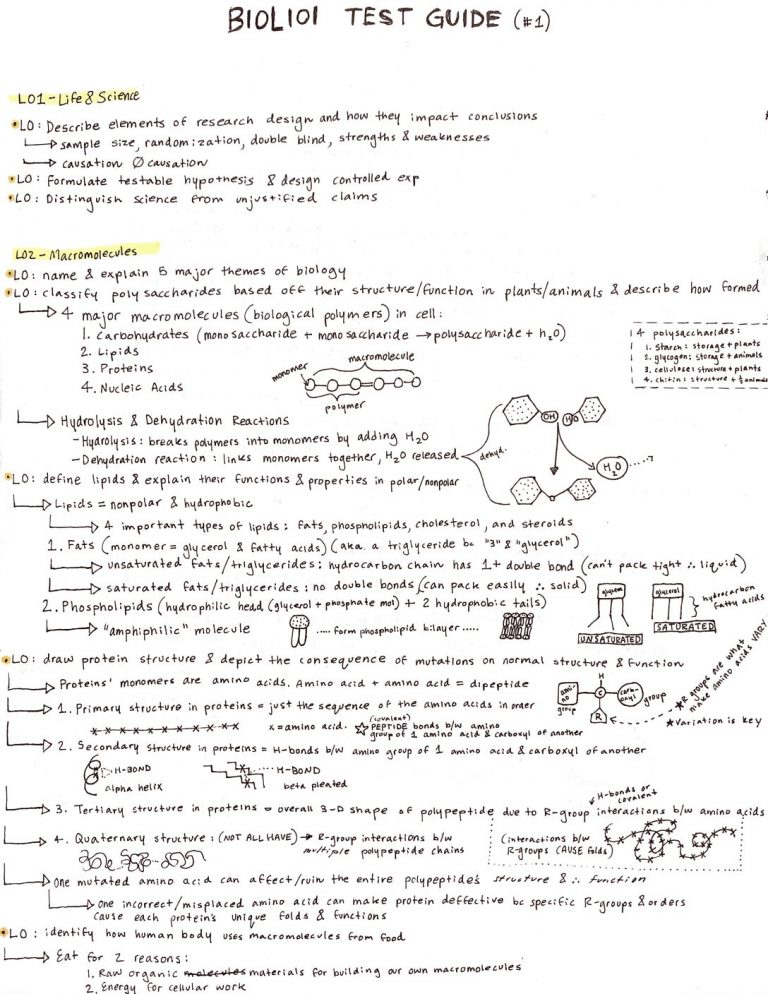 BIOL101 TEST GUIDE (#1)
LO1 - Life & Science
LO: Describe elements of research design and how they impact conclusions
sample size, randomization, double blind, strengths & weaknesses
causation Ø causation
LO: Formulate testable hypothesis & design controlled exp
LO: Distinguish science from unjustified claims
LO2 - Macromolecules
LO: name & explain 5 major themes of biology
LO: classify polysaccharides based off their structure/function in plants/animals & describe how formed
4 major macromolecules (biological polymers) in cell:
1. Carbohydrates (monosaccharide + monosaccharide → polysaccharide + h₂O)
2. Lipids
3. Proteins
4. Nucleic Acids
monomer
macromolecule
polymer
4 polysaccharides:
1. Starch: storage + plants
2. glycogen: storage + animals
3. cellulose: structure + plants
4. chitin: structure +
Hydrolysis & Dehydration Reactions
- Hydrolysis: breaks polymers into monomers by adding H₂O
- Dehydration reaction: links monomers together, H₂O released
dehyd.
OH
H₂O
LO: define lipids & explain their functions & properties in polar/nonpolar
Lipids = nonpolar & hydrophobic
4 important types of lipids: fats, phospholipids, cholesterol, and steroids
1. Fats (monomer = glycerol & fatty acids) (aka. a triglyceride bc "3" & "glycerol")
unsaturated fats/triglycerides: hydrocarbon chain has 1+ double bond (can't pack tight ∴ liquid)
saturated fats/triglycerides: no double bonds (can pack easily ∴ solid)
2. Phospholipids (hydrophilic head (glycerol + phosphate mol) + 2 hydrophobic tails)
"amphiphilic" molecule
..... form phospholipid bilayer .....
glycerol
UNSATURATED
glycerol
SATURATED
hydrocarbon
fatty acids
LO: draw protein structure & depict the consequence of mutations on normal structure & function
Proteins' monomers are amino acids. Amino acid + amino acid = dipeptide
1. Primary structure in proteins = just the sequence of the amino acids in order
x = amino acid.
(covalent)
☆ PEPTIDE bonds b/w amino
group of 1 amino acid & carboxyl of another
H
amino
group
C
carboxyl
group
R
★R groups are what
make amino acids vary
★Variation is key
2. Secondary structure in proteins = H-bonds b/w amino group of 1 amino acid & carboxyl of another
H-BOND
alpha helix
H-BOND
beta pleated
3. Tertiary structure in proteins = overall 3-D shape of polypeptide due to R-group interactions b/w amino acids
H-bonds or
covalent
4. Quaternary structure: (NOT ALL HAVE) → R-group interactions b/w
multiple polypeptide chains
(interactions b/w
R-groups CAUSE folds)
One mutated amino acid can affect/ruin the entire polypeptide's structure & ∴ function
one incorrect/misplaced amino acid can make protein deffective bc specific R-groups & orders
cause each protein's unique folds & functions
LO: identify how human body uses macromolecules from food
Eat for 2 reasons:
1. Raw organic molecules materials for building our own macromolecules
2. Energy for cellular work